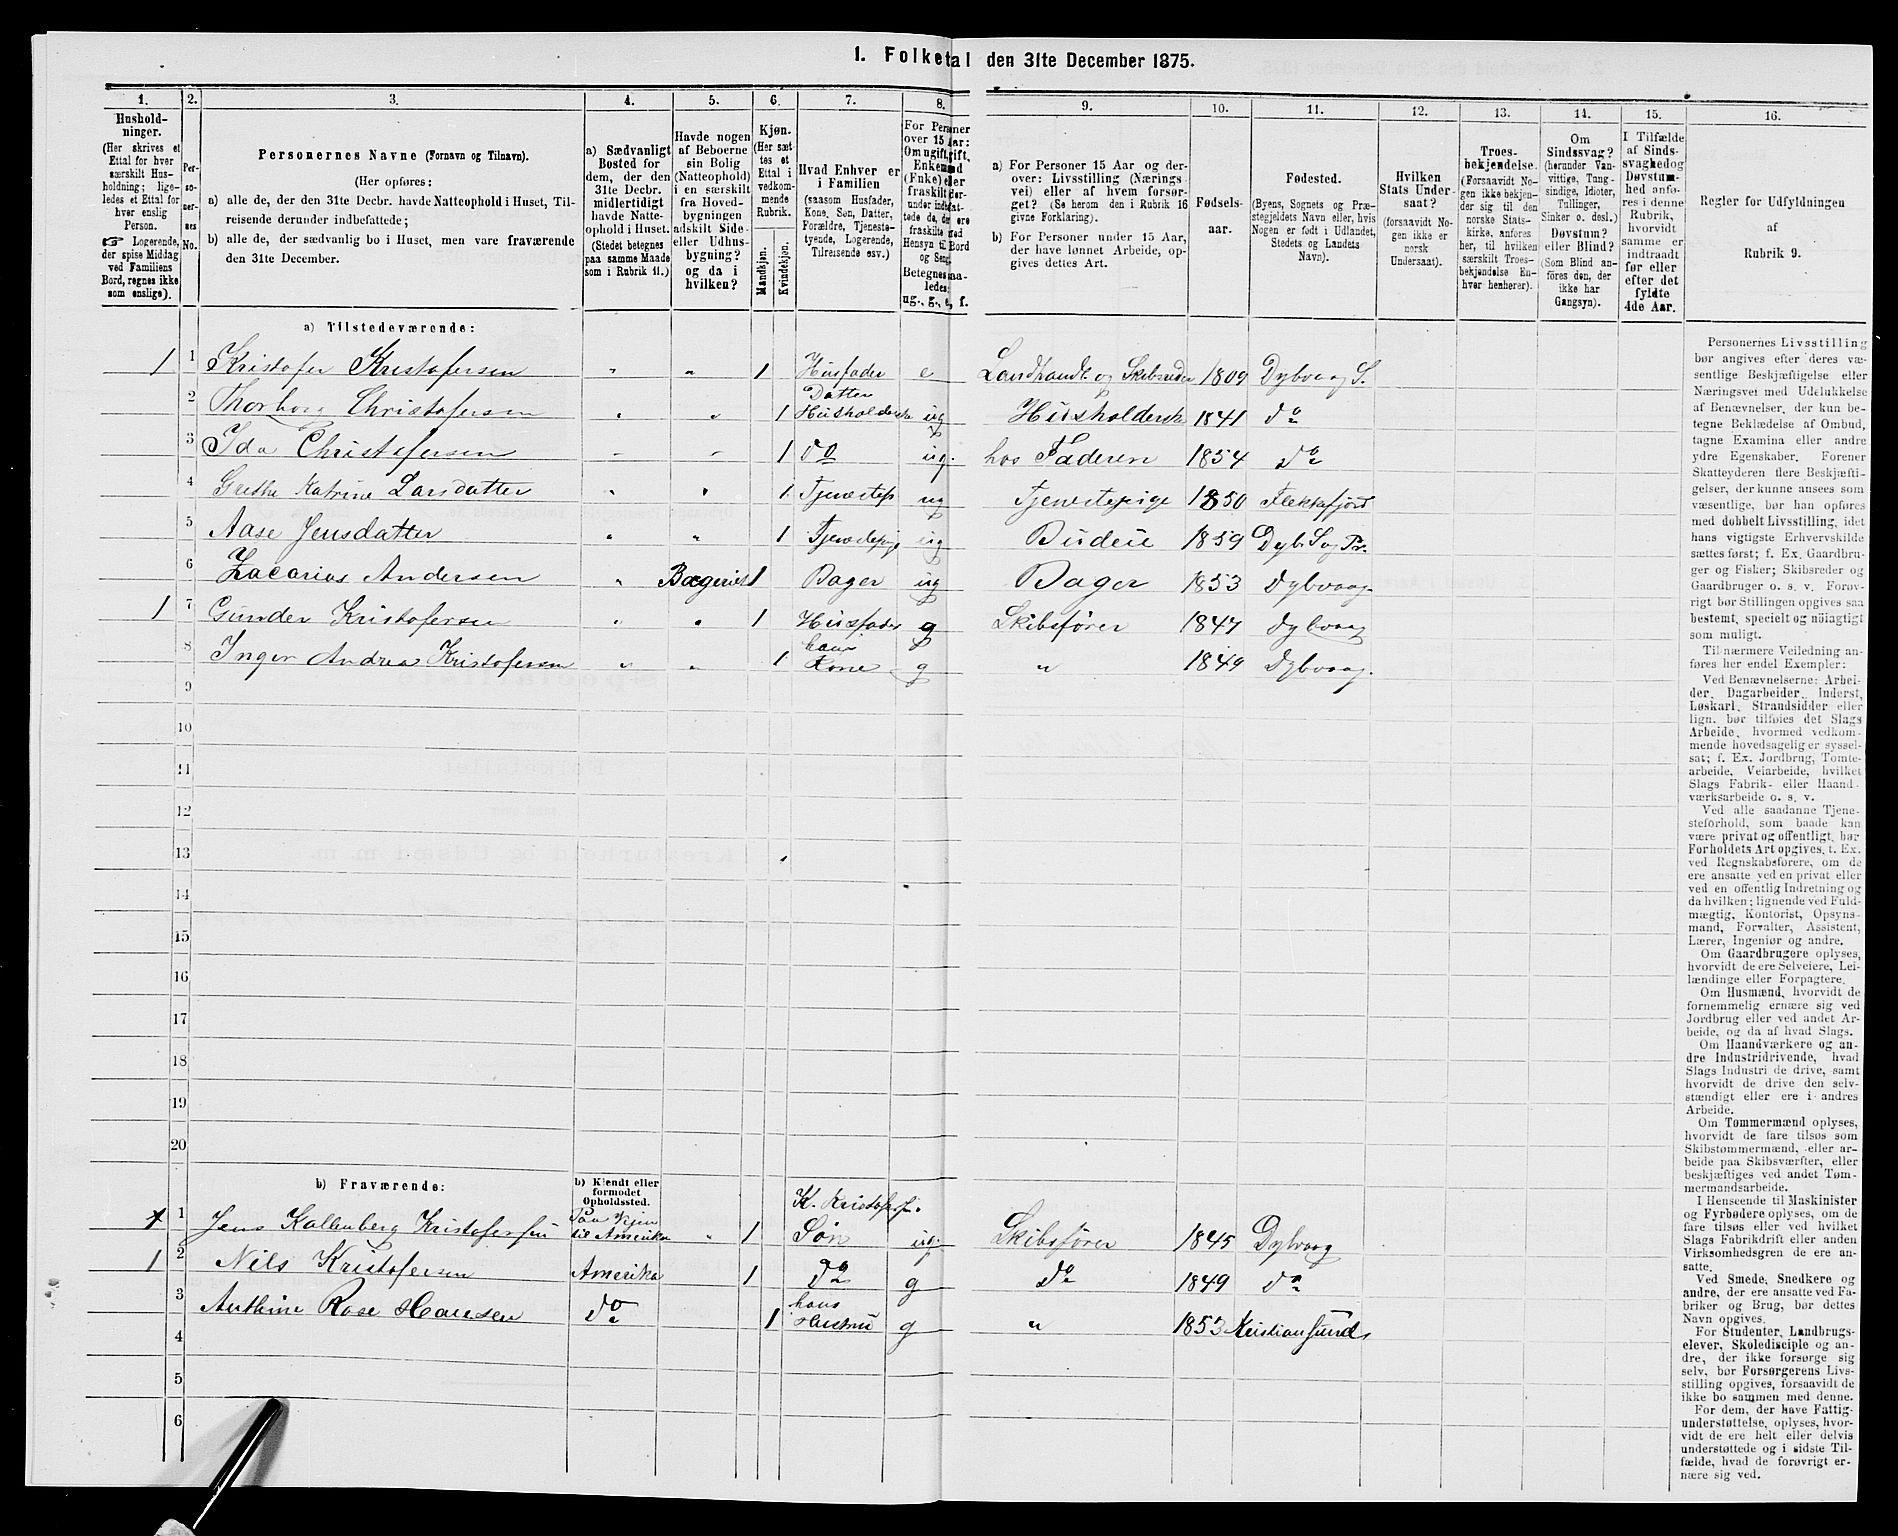 1. Folketal den 31te December 1875.
1. 2. 3. 4. 5. 6. 7. 8. 9. 10. 11. 12. 13. 14. 15. 16.
Hushold-
ninger.
(Her skrives et
Ettal for hver
særskilt Hus-
holdning; lige-
ledes et Ettal for
hver enslig
Person.
Logerende,
der spise Middag
ved Familiens
Bord, regnes ikke
som enslige).
Per-
so-
ner-
nes
No.
Personernes Navne (Fornavn og Tilnavn).
(Her opføres:
a) alle de, der den 31te Decbr. havde Natteophold i Huset, Til-
reisende derunder indbefattede;
b) alle de, der sædvanlig bo i Huset, men vare fraværende
den 31te December.
a) Sædvanligt
Bosted for
dem, der den
31te Decbr.
midlertidigt
havde Natte-
ophold i Huset.
(Stedet betegnes
paa samme Maade
som i Rubrik 11.)
Havde nogen
af Beboerne
sin Bolig
(Natteophold)
i en særskilt
fra Hoved-
bygningen
adskilt Side-
eller Udhus-
bygning?
og da i
hvilken?
Kjøn.
(Her sæt-
tes et
Ettal i
vedkom-
mende
Rubrik.
Mandkjøn.
Kvindekjøn.
Hvad Enhver er
i Familien
(saasom Husfader,
Kone, Søn, Datter,
Forældre, Tjeneste-
tyende, Logerende,
Tilreisende osv.)
For Personer
over 15 Aar:
Om ugift, gift,
Enkemand
(Enke) eller
fraskilt
Betegnes saa-
ledes:
ug., g., e., f.
a) For Personer 15 Aar og der-
over: Livsstilling (Nærings-
vei) eller af hvem forsør-
get? (Se herom den i Rubrik 16
givne Forklaring).
b) For Personer under 15 Aar,
der have lønnet Arbeide, op-
gives dettes Art.
Fødsels-
aar.
Fødested.
(Byens, Sognets og Præ-
stegjeldets Navn eller, hvis
Nogen er født i Udlandet,
Stedets og Landets
Navn).
Hvilken
Stats Under-
saat?
(forsaavidt No-
gen ikke er
norsk
Undersaat).
Troes-
bekjendelse.
(Forsaavidt No-
gen ikke bekjen-
der sig til den
norske Stats-
kirke, anføres
her, til hvilken
særskilt Troes-
bekjendelse En-
hver henhører).
Om
Sindssvag?
(herunder Van-
vittige, Tung-
sindige, Idioter,
Tullinger,
Sinker o. desl.)
Døvstum?
eller Blind?
(Som Blind an-
føres den, der
ikke har
Gangsyn).
I Tilfælde
af Sinds-
svaghed og
Døvstum-
hed anfø-
res i denne
Rubrik,
hvorvidt
samme er
indtraadt
før eller
efter det
fyldte
4de Aar.
Regler for Udfyldningen
af
Rubrik 9.
a) Tilstedeværende:
1 1 Kristofer Kristofersen " " 1 Husfader e Landhandl. og Skibsreder 1809 Dybvaag S.
2 Thorborg Christofersen " " 1 Datter Husholderske ug Husholderske 1841 do
3 Ida Christofersen " " 1 do ug. hos Faderen 1854 do
4 Grethe Katrine Larsdatter " " 1 Tjenestep ug Tjenestepige 1850 Flekkefjord
5 Aase Jensdatter " " 1 Tjenestepige ug Budeie 1859 Dyb. S og Pr.
6 Zacarias Andersen " Bageriet 1 Bager ug Bager 1853 Dybvaag
1 7 Gunder Kristofersen " " 1 Husfader g Skibsfører 1847 Dybvaag
8 Inger Andrea Kristofersen " " 1 hans Kone g " 1849 Dybvaag.
9
10
11
12
13
14
15
16
17
18
19
20
b) Fraværende:
b) Kjendt eller
formodet
Opholdssted.
1 Jens Kallenberg Kristofersen Paa Vejen til Amerika " 1 K. Kristofersen Søn ug. Skibsfører 1845 Dybvaag
1 2 Nils Kristofersen Amerika 1 do g do 1849 do
3 Anthine Rose Hansen do 1 hans Hustru g " 1853 Kristiansund
4
5
6
Personernes Livsstilling
bør angives efter deres væ-
sentlige Beskjæftigelse eller
Næringsvei med Udelukkelse
af Benævnelser, der kun be-
tegne Beklædelse af Ombud,
tagne Examina eller andre
ydre Egenskaber. Forener
Skatteyderen flere Beskjæfti-
gelser, der kunne ansees som
væsentlige, bør han opføres
med dobbelt Livsstilling, idet
hans vigtigste Erhvervskilde
sættes først; f. Ex. Gaardbru-
ger og Fisker; Skibsreder og
Gaardbruger o. s. v. Forøv-
rigt bør Stillingen opgives saa
bestemt, specielt og nøiagtigt
som muligt.
Til nærmere Veiledning an-
føres her endel Exempler:
Ved Benævnelserne: Arbei-
der, Dagarbeider, Inderst,
Løskarl, Strandsidder eller
lign. bør tilføies det Slags
Arbeide, hvormed vedkom-
mende hovedsagelig er syssel-
sat; f. Ex. Jordbrug, Tomte-
arbeide, Veiarbeide, hvilket
Slags Fabrik- eller Haand-
værksarbeide o. s. v.
Ved alle saadanne Tjene-
steforhold, som baade kan
være privat og offentligt, bør
Forholdets Art opgives, t. Ex.
ved Regnskabsførere, om de
ere ansatte ved en privat eller
ved en offentlig Indretning og
da hvilken; lignende ved Fuld-
mægtig, Kontorist, Opsyns-
mand, Forvalter, Assistent,
Lærer, Ingeniør og andre.
Om Gaardbrugere oplyses,
hvorvidt de ere Selveiere, Lei-
lændinge eller Forpagtere.
Om Husmænd, hvorvidt de
fornemmelig ernære sig ved
Jordbrug eller ved andet Ar-
beide, og da af hvad Slags.
Om Haandværkere og an-
dre Industridrivende, hvad
Slags Industri de drive, samt
hvorvidt de drive den selv-
stændigt eller ere i andres
Arbeide.
Om Tømmermænd oplyses,
hvorvidt de fare tilsøs som
Skibstømmermænd, eller ar-
beide paa Skibsværfter, eller
beskjæftiges ved andet Tøm-
mermandsarbeide.
I Henseende til Maskinister
og Fyrbødere oplyses, om de
fare tilsøs eller ved hvilket
Slags Fabrikdrift eller anden
Virksomhedsgren de ere an-
satte.
Ved Smede, Snedkere og
andre, der ere ansatte ved Fa-
briker og Brug, bør dettes
Navn opgives.
For Studenter, Landbrugs-
elever, Skoledisciple og an-
dre, der ikke forsørge sig
selv, bør Forsørgerens Livs-
stilling opgives, forsaavidt de
ikke bo sammen med denne.
For dem, der have Fattig-
understøttelse, oplyses, hvor-
vidt de ere helt eller delvis
understøttede og i sidste Til-
fælde, hvad de forøvrigt er-
nære sig ved.